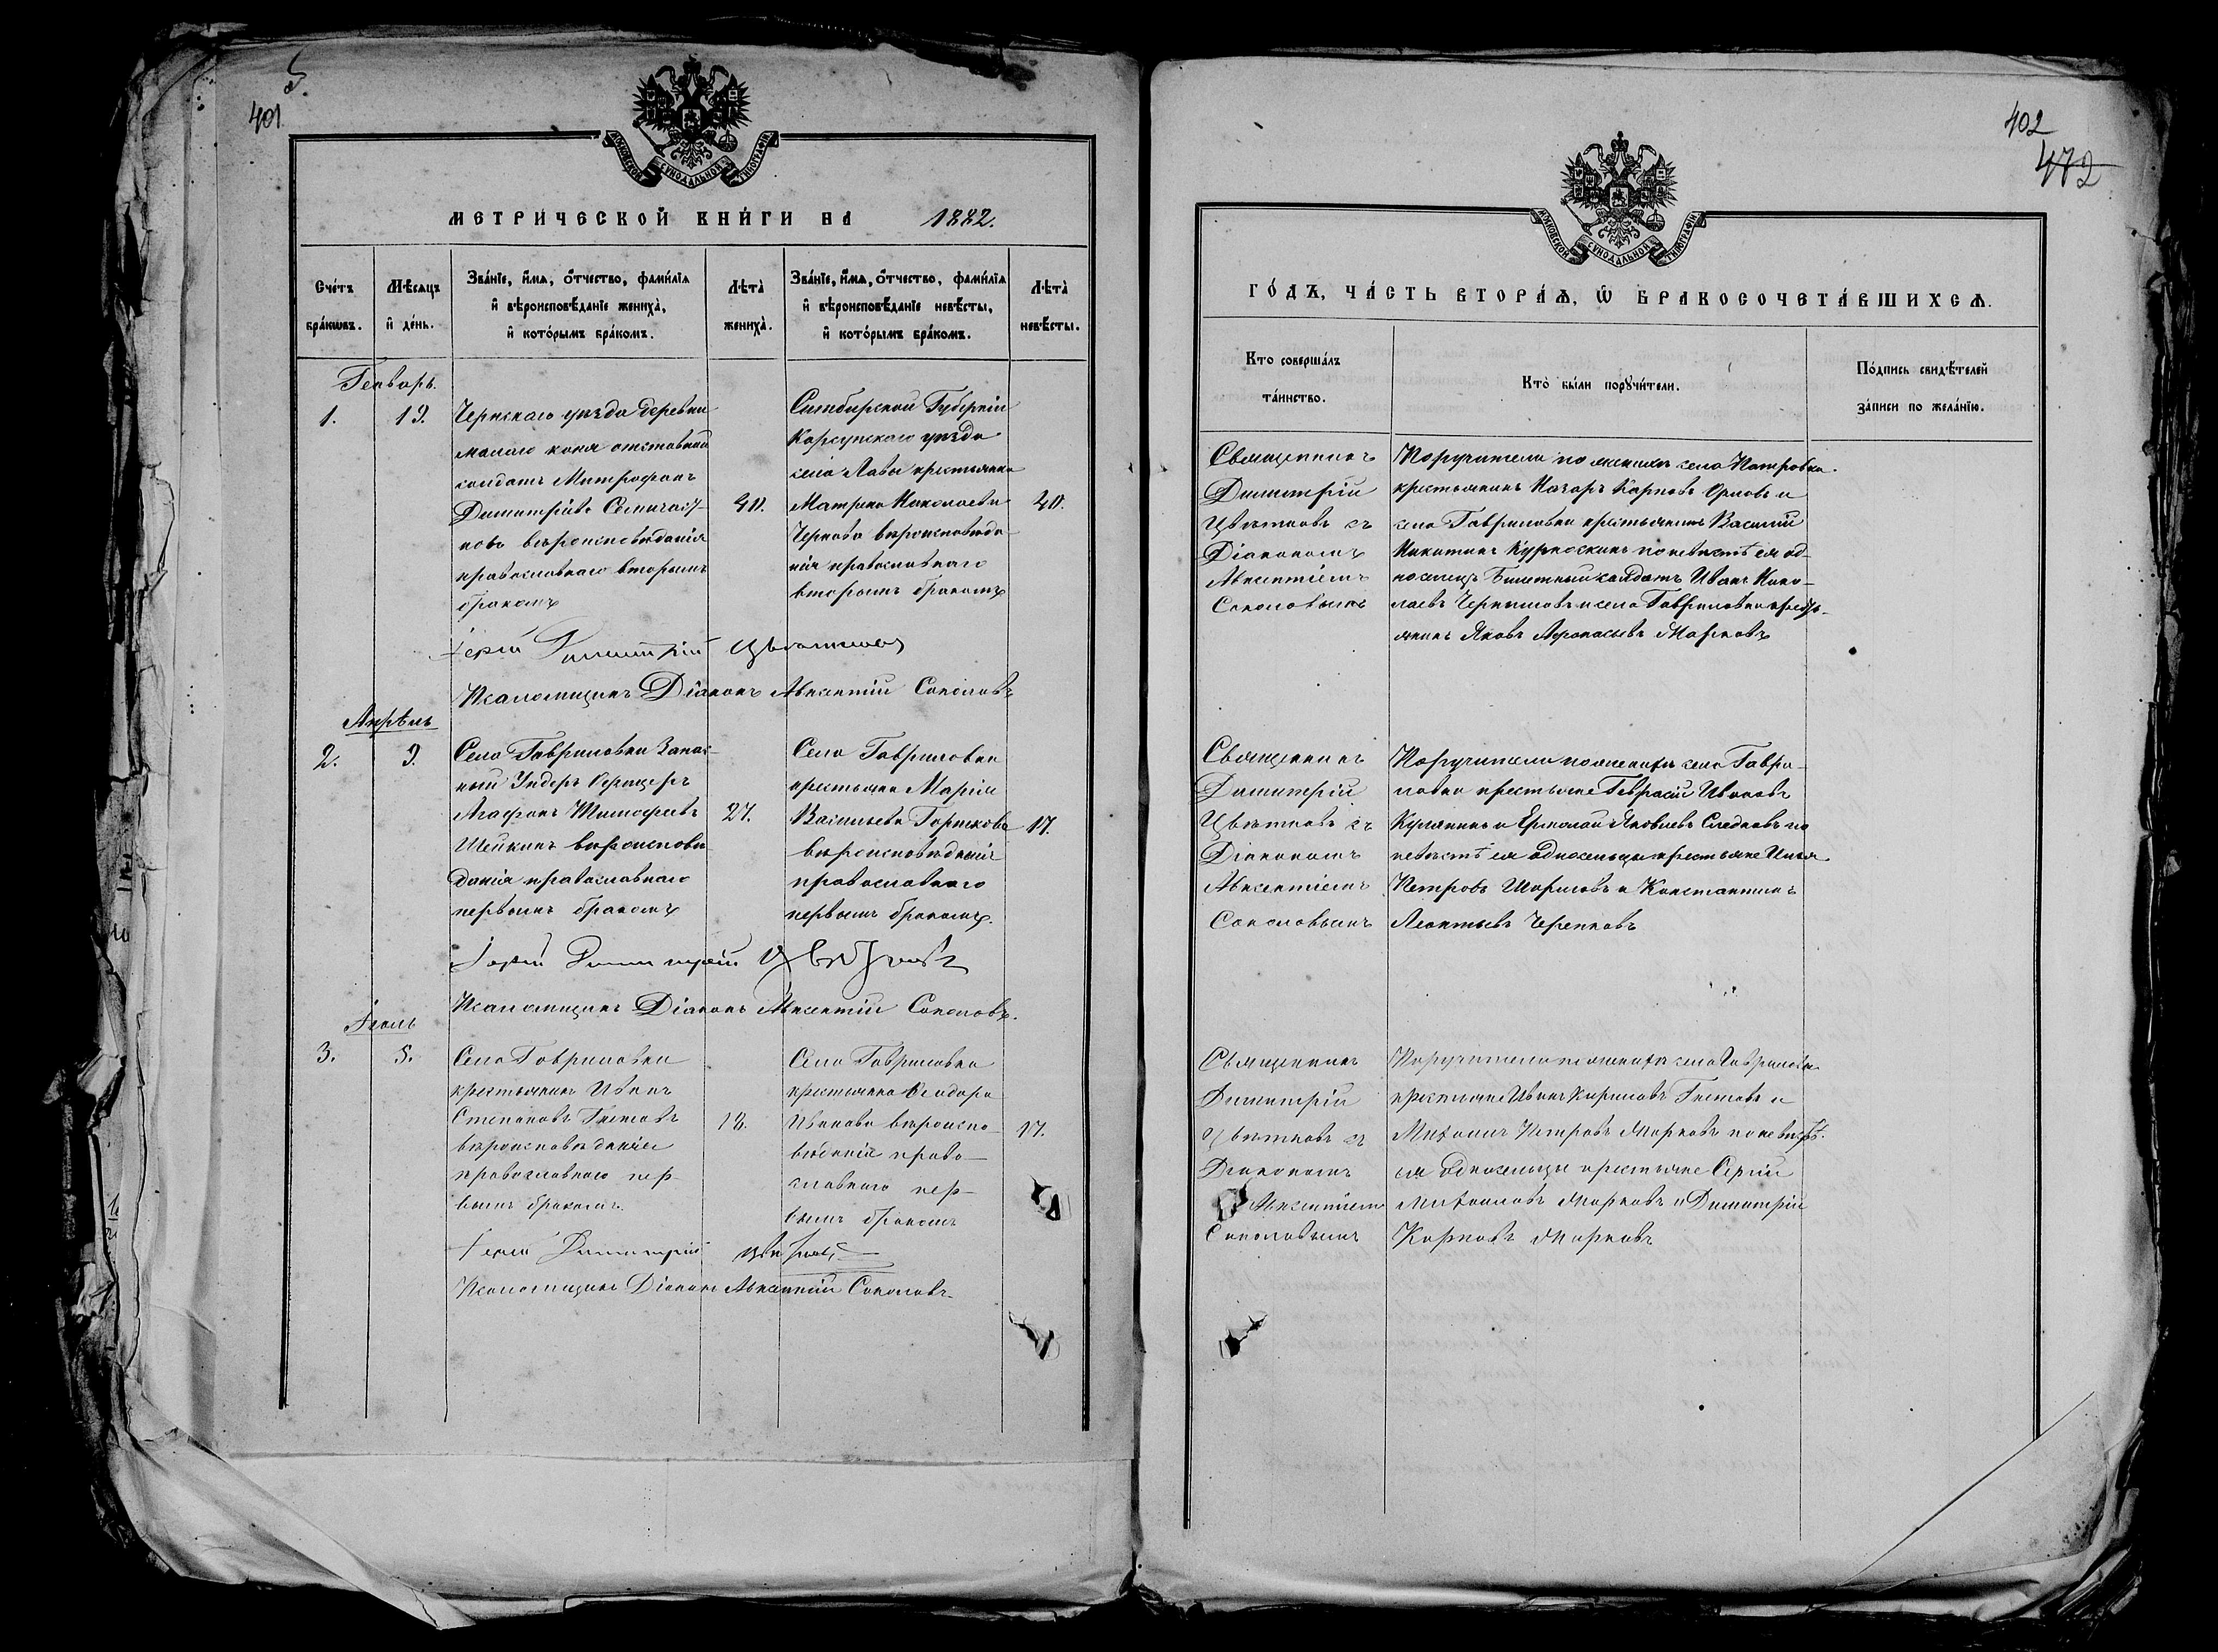 401
МОСКОВСКОЙ СѴНОДАЛЬНОЙ ТИПОГРАФІИ
МЕТРИЧЕСКОЙ КНИ́ГИ НА 1882.
Сче́тъ бра́кωвъ.
Мѣ́сяцъ и҆ де́нь.
Зва́нїе, и҆́мѧ, ѻ҆́тчество, фами́лїѧ
и҆ вѣроисповѣ́данїе жениха̀,
и҆ кото́рымъ бра́комъ.
Лѣта̀ жениха̀.
Зва́нїе, и҆́мѧ, ѻ҆́тчество, фами́лїѧ
и҆ вѣроисповѣ́данїе невѣ́сты,
и҆ кото́рымъ бра́комъ.
Лѣта̀ невѣ́сты.
Генварь.
1. 19.
уѣзда деревни
отставной
солдатъ Митрофанъ
Димитріевъ
вѣроисповѣданія
православнаго вторымъ
бракомъ
40.
Симбирской Губерніи
Корсунскаго уѣзда
села Лавы крестьянка
Матрена Николаева
вѣроисповѣда-
нія православнаго
вторымъ бракомъ
40.
Іерей Димитрій Цвѣтковъ
Псаломщикъ Діаконъ Авксентій Соколовъ
Апрѣль
2. 9.
Села Гавриловки Запас-
ный Ундеръ Офицеръ
Агафонъ Тимофеевъ
Шейкинъ вѣроисповѣ-
данія православнаго
первымъ бракомъ
27.
Села Гавриловки
крестьянка Марія
Васильева Горшкова
вѣроисповѣданія
православнаго
первымъ бракомъ.
17.
Іерей Димитрій Цвѣтковъ
Псаломщикъ Діаконъ Авксентій Соколовъ.
Іюль
3. 5.
Села Гавриловки
крестьянинъ Иванъ
Степановъ Гнетовъ
вѣроисповѣданія
православнаго пер-
вымъ бракомъ.
18.
Села Гавриловки
крестьянка Ѳеодора
Иванова вѣроиспо-
вѣданія право-
славнаго пер-
вымъ бракомъ
17.
Іерей Димитрій Цвѣтковъ
Псаломщикъ Діаконъ Авксентій Соколовъ.
402
472
МОСКОВСКОЙ СѴНОДАЛЬНОЙ ТИПОГРАФІИ
ГО́ДЪ, ЧА́СТЬ ВТОРА́Ѧ, Ѽ БРАКОСОЧЕТА́ВШИХСѦ.
Кто̀ соверша́лъ
та́инство.
Кто̀ бы́ли порꙋчи́тели.
По́дпись свидѣ́телей
за́писи по жела́нїю.
Священникъ
Димитрій
Цвѣтковъ съ
Діакономъ
Авксентіемъ
Соколовымъ
Поручители по женихѣ села Петровки
крестьянинъ Назаръ Карповъ Орловъ и
села Гавриловки крестьянинъ Василій
Никитинъ по невѣстѣ ея од-
носелецъ Билетный солдатъ Иванъ Нико-
лаевъ и села Гавриловки кресть-
янинъ Яковъ Афанасьевъ Марковъ
Священникъ
Димитрій
Цвѣтковъ съ
Діакономъ
Авксентіемъ
Соколовымъ
Поручители по женихѣ села Гаври-
ловки крестьяне Герасій Ивановъ
и Ермолай Яковлевъ Следковъ по
невѣстѣ ея односельцы крестьяне Илья
Петровъ и Константинъ
Леонтьевъ Черепковъ
Священникъ
Димитрій
Цвѣтковъ съ
Діакономъ
Авксентіемъ
Соколовымъ
Поручители по женихѣ села Гавриловки
крестьяне Иванъ Кириловъ Гнетовъ и
Михаилъ Петровъ Марковъ по невѣстѣ.
ея односельцы крестьяне Сергій
Михаиловъ Марковъ и Димитрій
Карповъ Марковъ